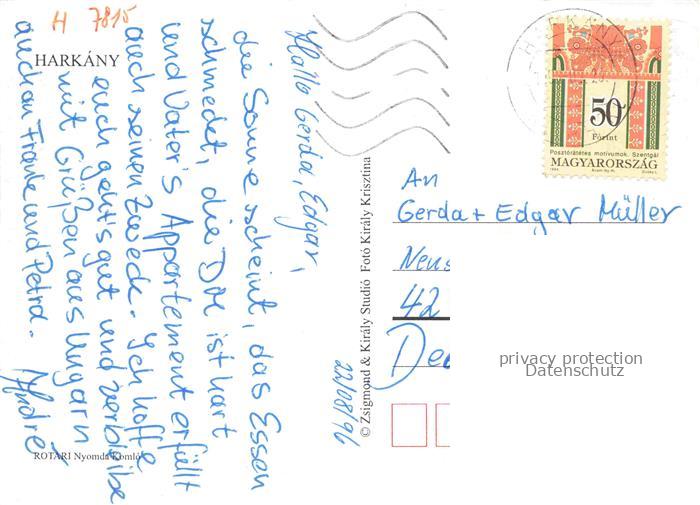 H 7815
HARKÁNY
Hallo Gerda, Edgar,
die Sonne scheint, das Essen
schmedet, die DM ist hart
und Vater's Appartement erfüllt
auch seinen Zweck. Ich hoffe
euch gehts gut und verbleibe
mit Grüßen aus Ungarn
auch an Frank und Petra.
André
22/08/96
ROTARI Nyomda Komló
© Zsigmond & Király Studió Fotó Király Krisztina
HARKÁNY
50
Forint
Posztórátétes motívumok. Szentgál
MAGYARORSZÁG
1994
An
Gerda + Edgar Müller
Neus
42
Deu
privacy protection
Datenschutz